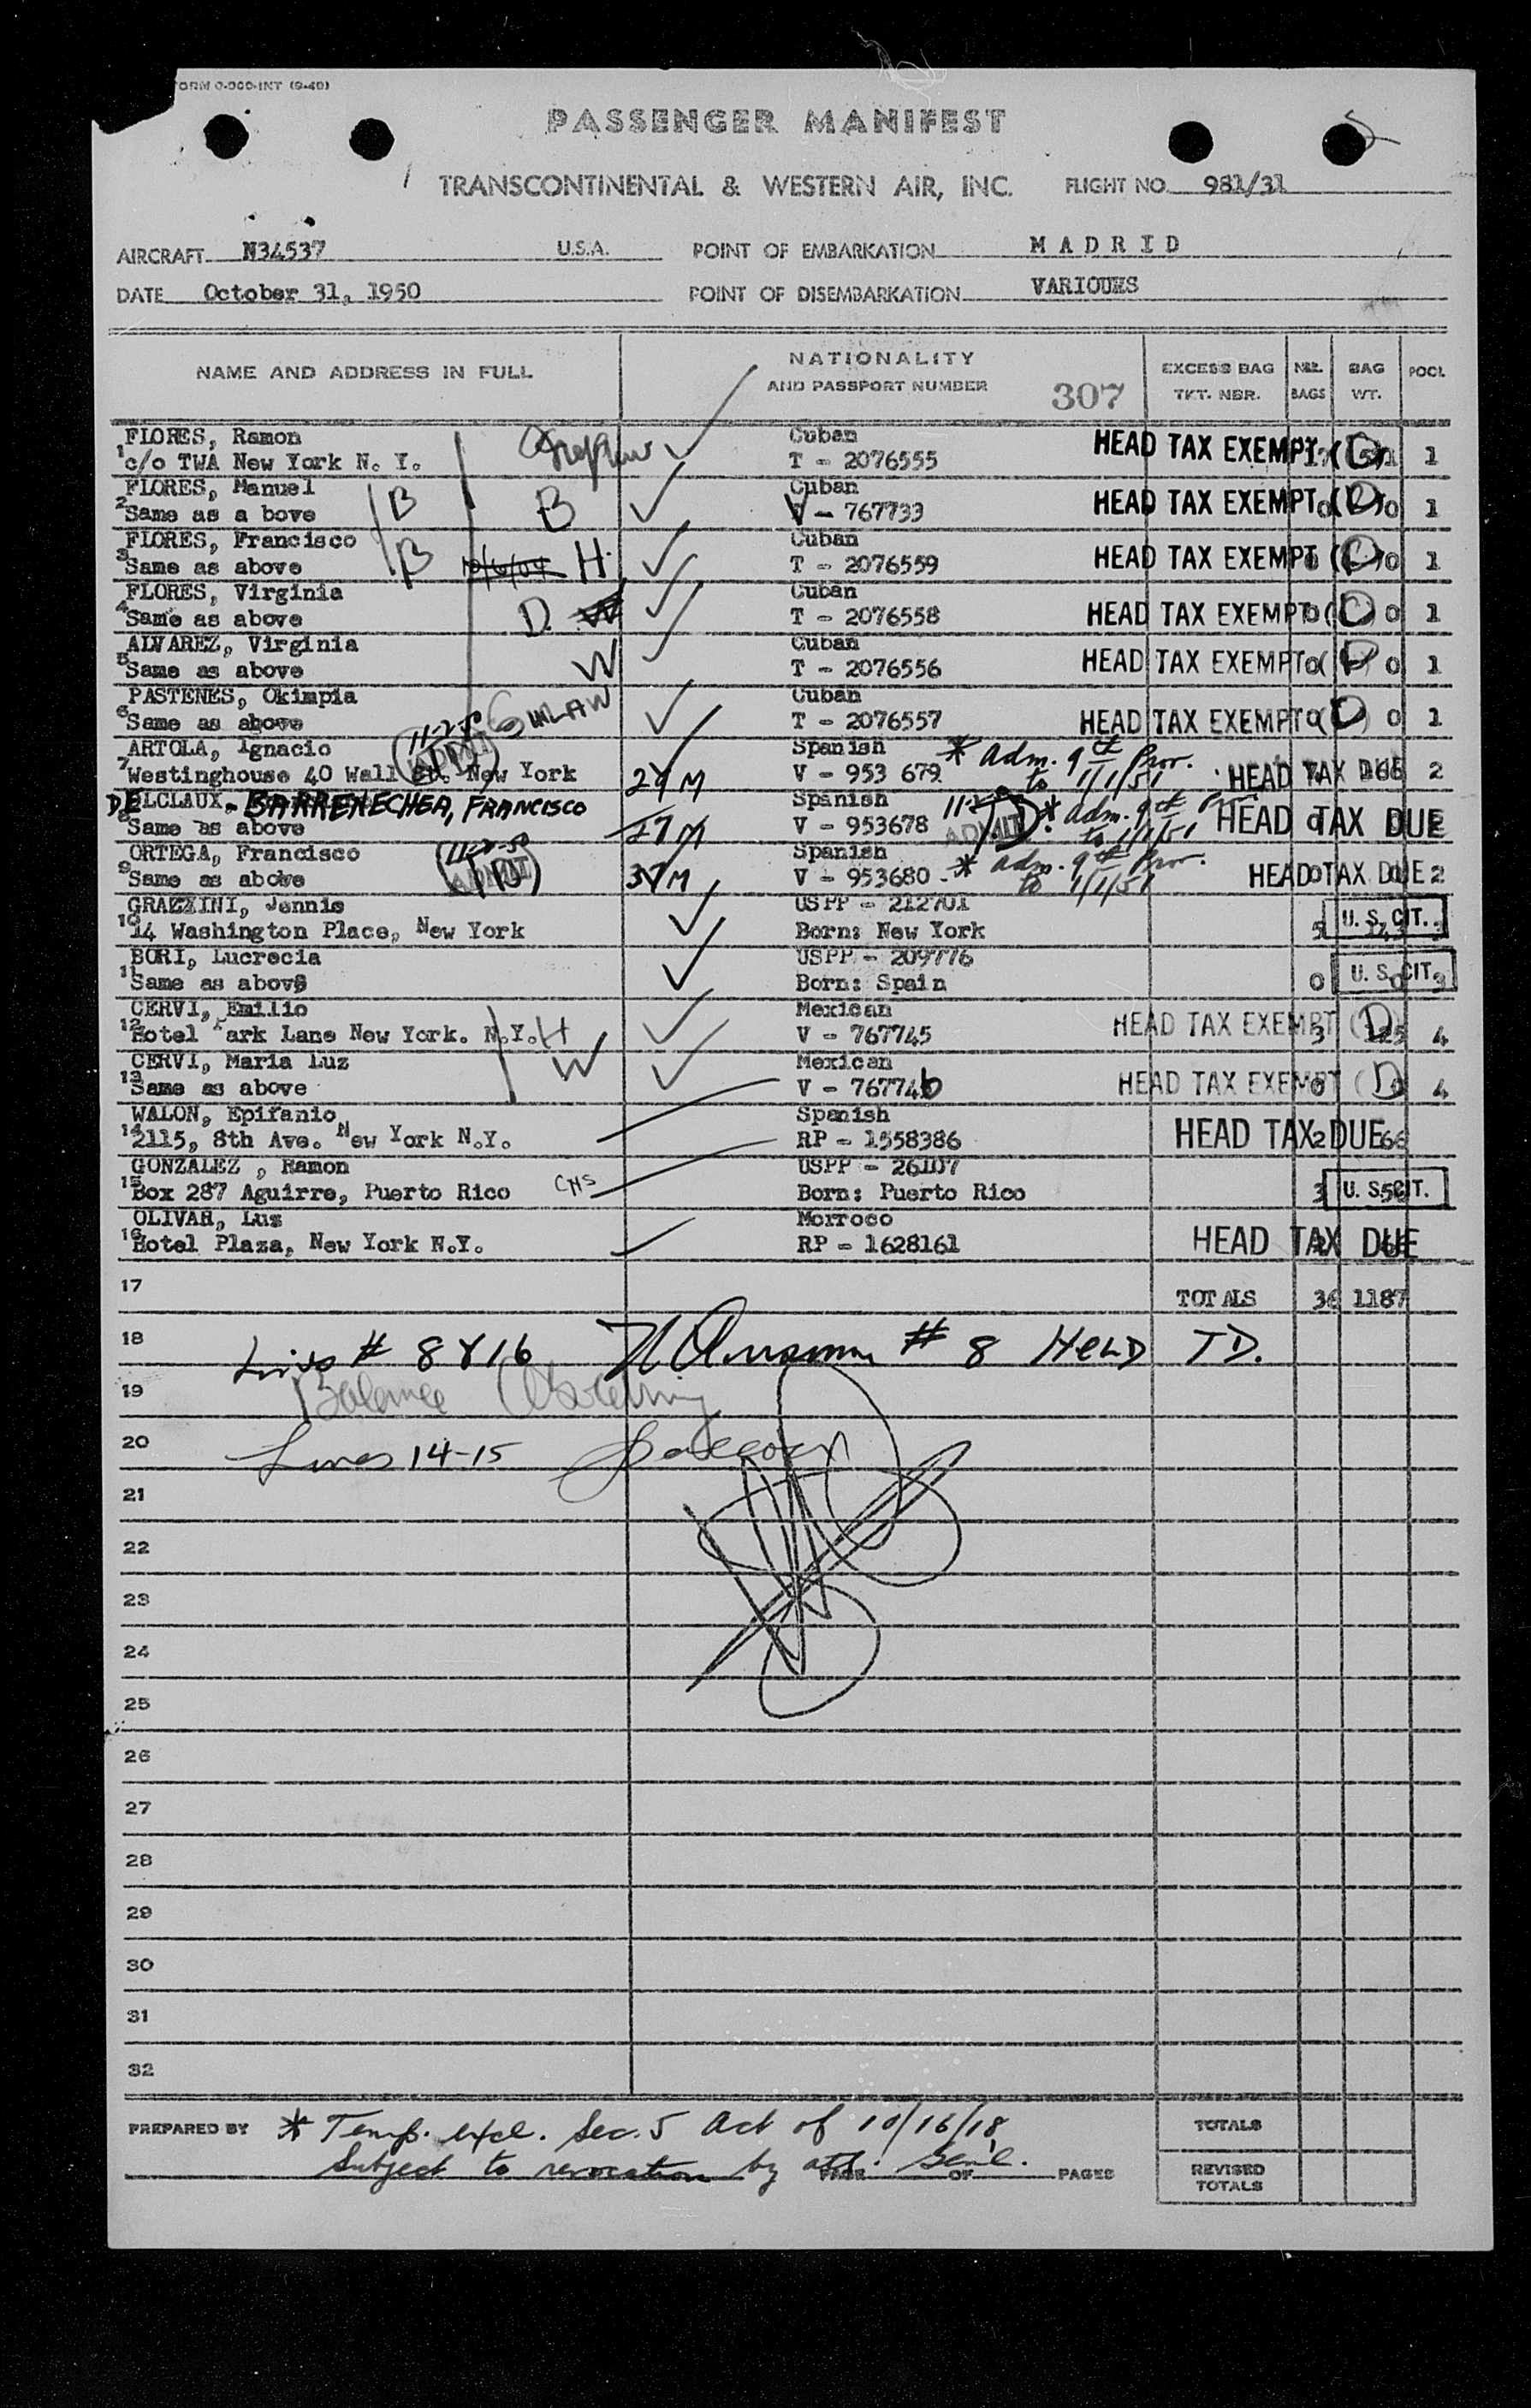 FORM O-000-INT (9-49)
PASSENGER MANIFEST
TRANSCONTINENTAL & WESTERN AIR, INC. FLIGHT NO. 981/31
AIRCRAFT N34537 U.S.A. POINT OF EMBARKATION MADRID
DATE October 31, 1950 POINT OF DISEMBARKATION VARIOUES
NAME AND ADDRESS IN FULL NATIONALITY AND PASSPORT NUMBER 307 EXCESS BAG TKT. NBR. NBR. BAGS BAG WT. POOL
FLORES, Ramon Cuban
1 c/o TWA New York N. Y. T - 2076555 HEAD TAX EXEMPT (D) 1
FLORES, Manuel B B Cuban
2 Same as a bove V - 767733 HEAD TAX EXEMPT (D) 0 1
FLORES, Francisco Cuban
3 Same as above B H. T - 2076559 HEAD TAX EXEMPT (D) 0 1
FLORES, Virginia Cuban
4 Same as above D. W T - 2076558 HEAD TAX EXEMPT 0 (D) 0 1
ALVAREZ, Virginia Cuban
5 Same as above W T - 2076556 HEAD TAX EXEMPT 0 (D) 0 1
PASTENES, Okimpia Cuban
6 Same as above INLAW T - 2076557 HEAD TAX EXEMPT 0 (D) 0 1
ARTOLA, Ignacio 11-2-50 ADMIT (D) Spanish * Adm. 9th Prov.
7 Westinghouse 40 Wall St. New York 29 M V - 953 679 to 1/1/51 HEAD TAX DUE 2
DELCLAUX - BARRENECHEA, FRANCISCO Spanish ADMIT D. * adm. 9th
8 Same as above 27 M V - 953678 to 1/1/51 HEAD TAX DUE 2
ORTEGA, Francisco 11-2-50 ADMIT (D) Spanish * adm. 9th Prov.
9 Same as above 37 M V - 953680 to 1/1/51 HEAD TAX DUE 2
GRAZZINI, Jennie USPP - 212701
10 14 Washington Place, New York Born: New York 5 U. S. CIT. 3
BORI, Lucrecia USPP - 209776
11 Same as above Born: Spain 0 U. S. CIT. 0 3
CERVI, Emilio Mexican
12 Hotel Park Lane New York. N.Y. H V - 767745 HEAD TAX EXEMPT 3 (D) 125 4
CERVI, Maria Luz Mexican
13 Same as above W V - 767746 HEAD TAX EXEMPT 0 (D) 4
WALON, Epifanio Spanish
14 2115, 8th Ave. New York N.Y. RP - 1558386 HEAD TAX DUE 2 66
GONZALEZ , Ramon USPP - 26107
15 Box 287 Aguirre, Puerto Rico Born: Puerto Rico 3 U. S. CIT.
OLIVAR, Luz Morroco
16 Hotel Plaza, New York N.Y. RP - 1628161 HEAD TAX DUE
17 TOTALS 36 1187
18 # 8 Y 16 # 8 HELD TD.
19 Balance
20 Lines 14-15
21
22
23
24
25
26
27
28
29
30
31
32
PREPARED BY * Temp. excl. Sec. 5 Act of 10/16/18 TOTALS
Subject to revocation by att. Genl. PAGE OF PAGES REVISED TOTALS